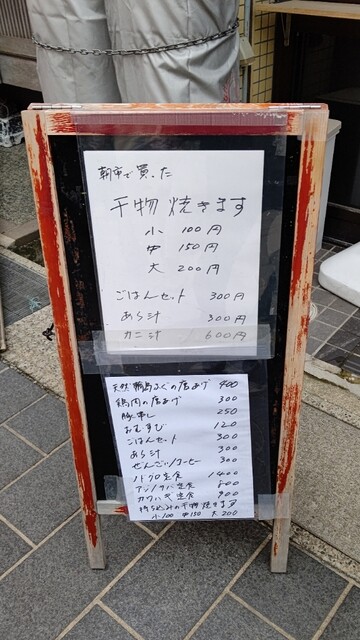 朝市で買った
干物 焼きます
小 100円
中 150円
大 200円
ごはんセット 300円
あら汁 300円
カニ汁 600円
天然輪島ふぐの唐あげ 400
鶏肉の唐あげ 300
豚串し 250
おむすび 120
ごはんセット 300
あら汁 300
ぜんざい/コーヒー 300
ノドクロ定食 1400
アジ/サバ定食 800
カワハギ定食 900
持ち込みの干物 焼きます
小100 中150 大200